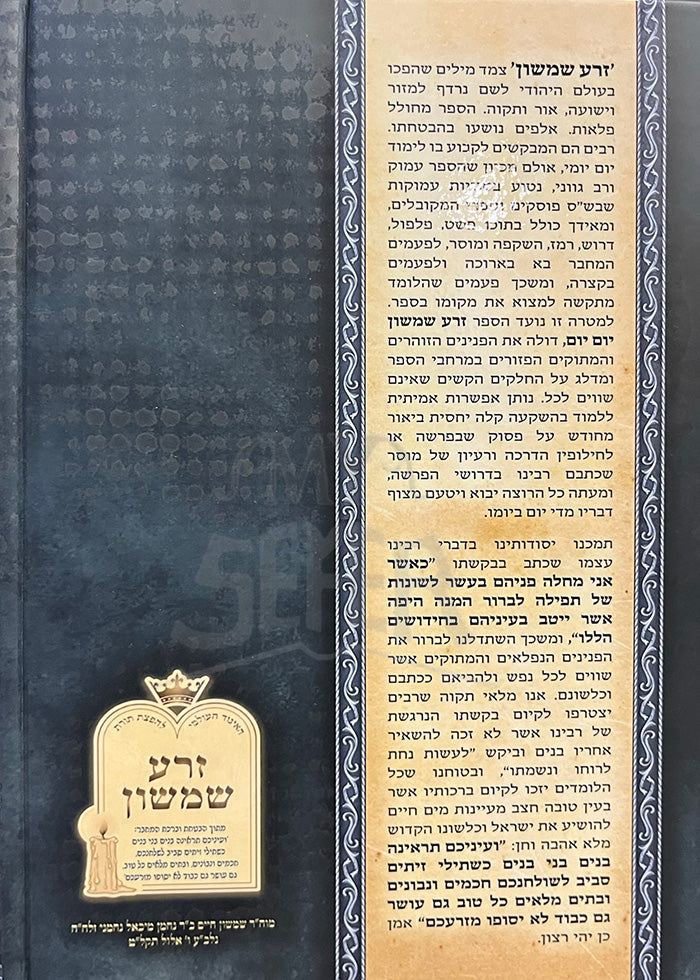 'זרע שמשון' צמד מילים שהפכו
בעולם היהודי לשם נרדף למזור
וישועה, אור ותקוה. הספר מחולל
פלאות. אלפים נושעו בהבטחתו.
רבים הם המבקשים לקבוע בו לימוד
יום יומי, אולם מכיון שהספר עמוק
ורב גווני, נטוע עמוקות
שבש"ס פוסקים וספרי המקובלים,
ומאידך כולל בתוכו פשט, פלפול,
דרוש, רמז, השקפה ומוסר, לפעמים
המחבר בא בארוכה ולפעמים
בקצרה, ומשכך פעמים שהלומד
מתקשה למצוא את מקומו בספר.
למטרה זו נועד הספר זרע שמשון
יום יום, דולה את הפנינים הזוהרים
והמתוקים הפזורים במרחבי הספר
ומדלג על החלקים הקשים שאינם
שווים לכל. נותן אפשרות אמיתית
ללמוד בהשקעה קלה יחסית ביאור
מחודש על פסוק שבפרשה או
לחילופין הדרכה ורעיון של מוסר
שכתבם רבינו בדרושי הפרשה,
ומעתה כל הרוצה יבוא ויטעם מצוף
דבריו מדי יום ביומו.
תמכנו יסודותינו בדברי רבינו
עצמו שכתב בבקשתו "כאשר
אני מחלה פניהם בעשר לשונות
של תפילה לברור המנה היפה
אשר ייטב בעיניהם בחידושים
הללו", ומשכך השתדלנו לברור את
הפנינים הנפלאים והמתוקים אשר
שווים לכל נפש ולהביאם ככתבם
וכלשונם. אנו מלאי תקוה שרבים
יצטרפו לקיום בקשתו הנרגשת
של רבינו אשר לא זכה להשאיר
אחריו בנים וביקש "לעשות נחת
לרוחו ונשמתו", ובטוחנו שכל
הלומדים יזכו לקיום ברכותיו אשר
בעין טובה חצב מעיינות מים חיים
להושיע את ישראל וכלשונו הקדוש
מלא אהבה וחן: "ועיניכם תראינה
בנים בני בנים כשתילי זיתים
סביב לשולחנכם חכמים ונבונים
ובתים מלאים כל טוב גם עושר
גם כבוד לא יסופו מזרעכם" אמן
כן יהי רצון.
האיגוד העולמי להפצת תורת
זרע
שמשון
מתוך הבטחת וברכת המחבר:
'ועיניכם תראינה בנים בני בנים
כשתילי זיתים סביב לשלחנכם,
חכמים ונבונים, ובתים מלאים כל טוב,
גם עושר גם כבוד לא יסופו מזרעכם'
מוה"ר שמשון חיים ב"ר נחמן מיכאל נחמני זלה"ה
נלב"ע ו' אלול תקל"ט